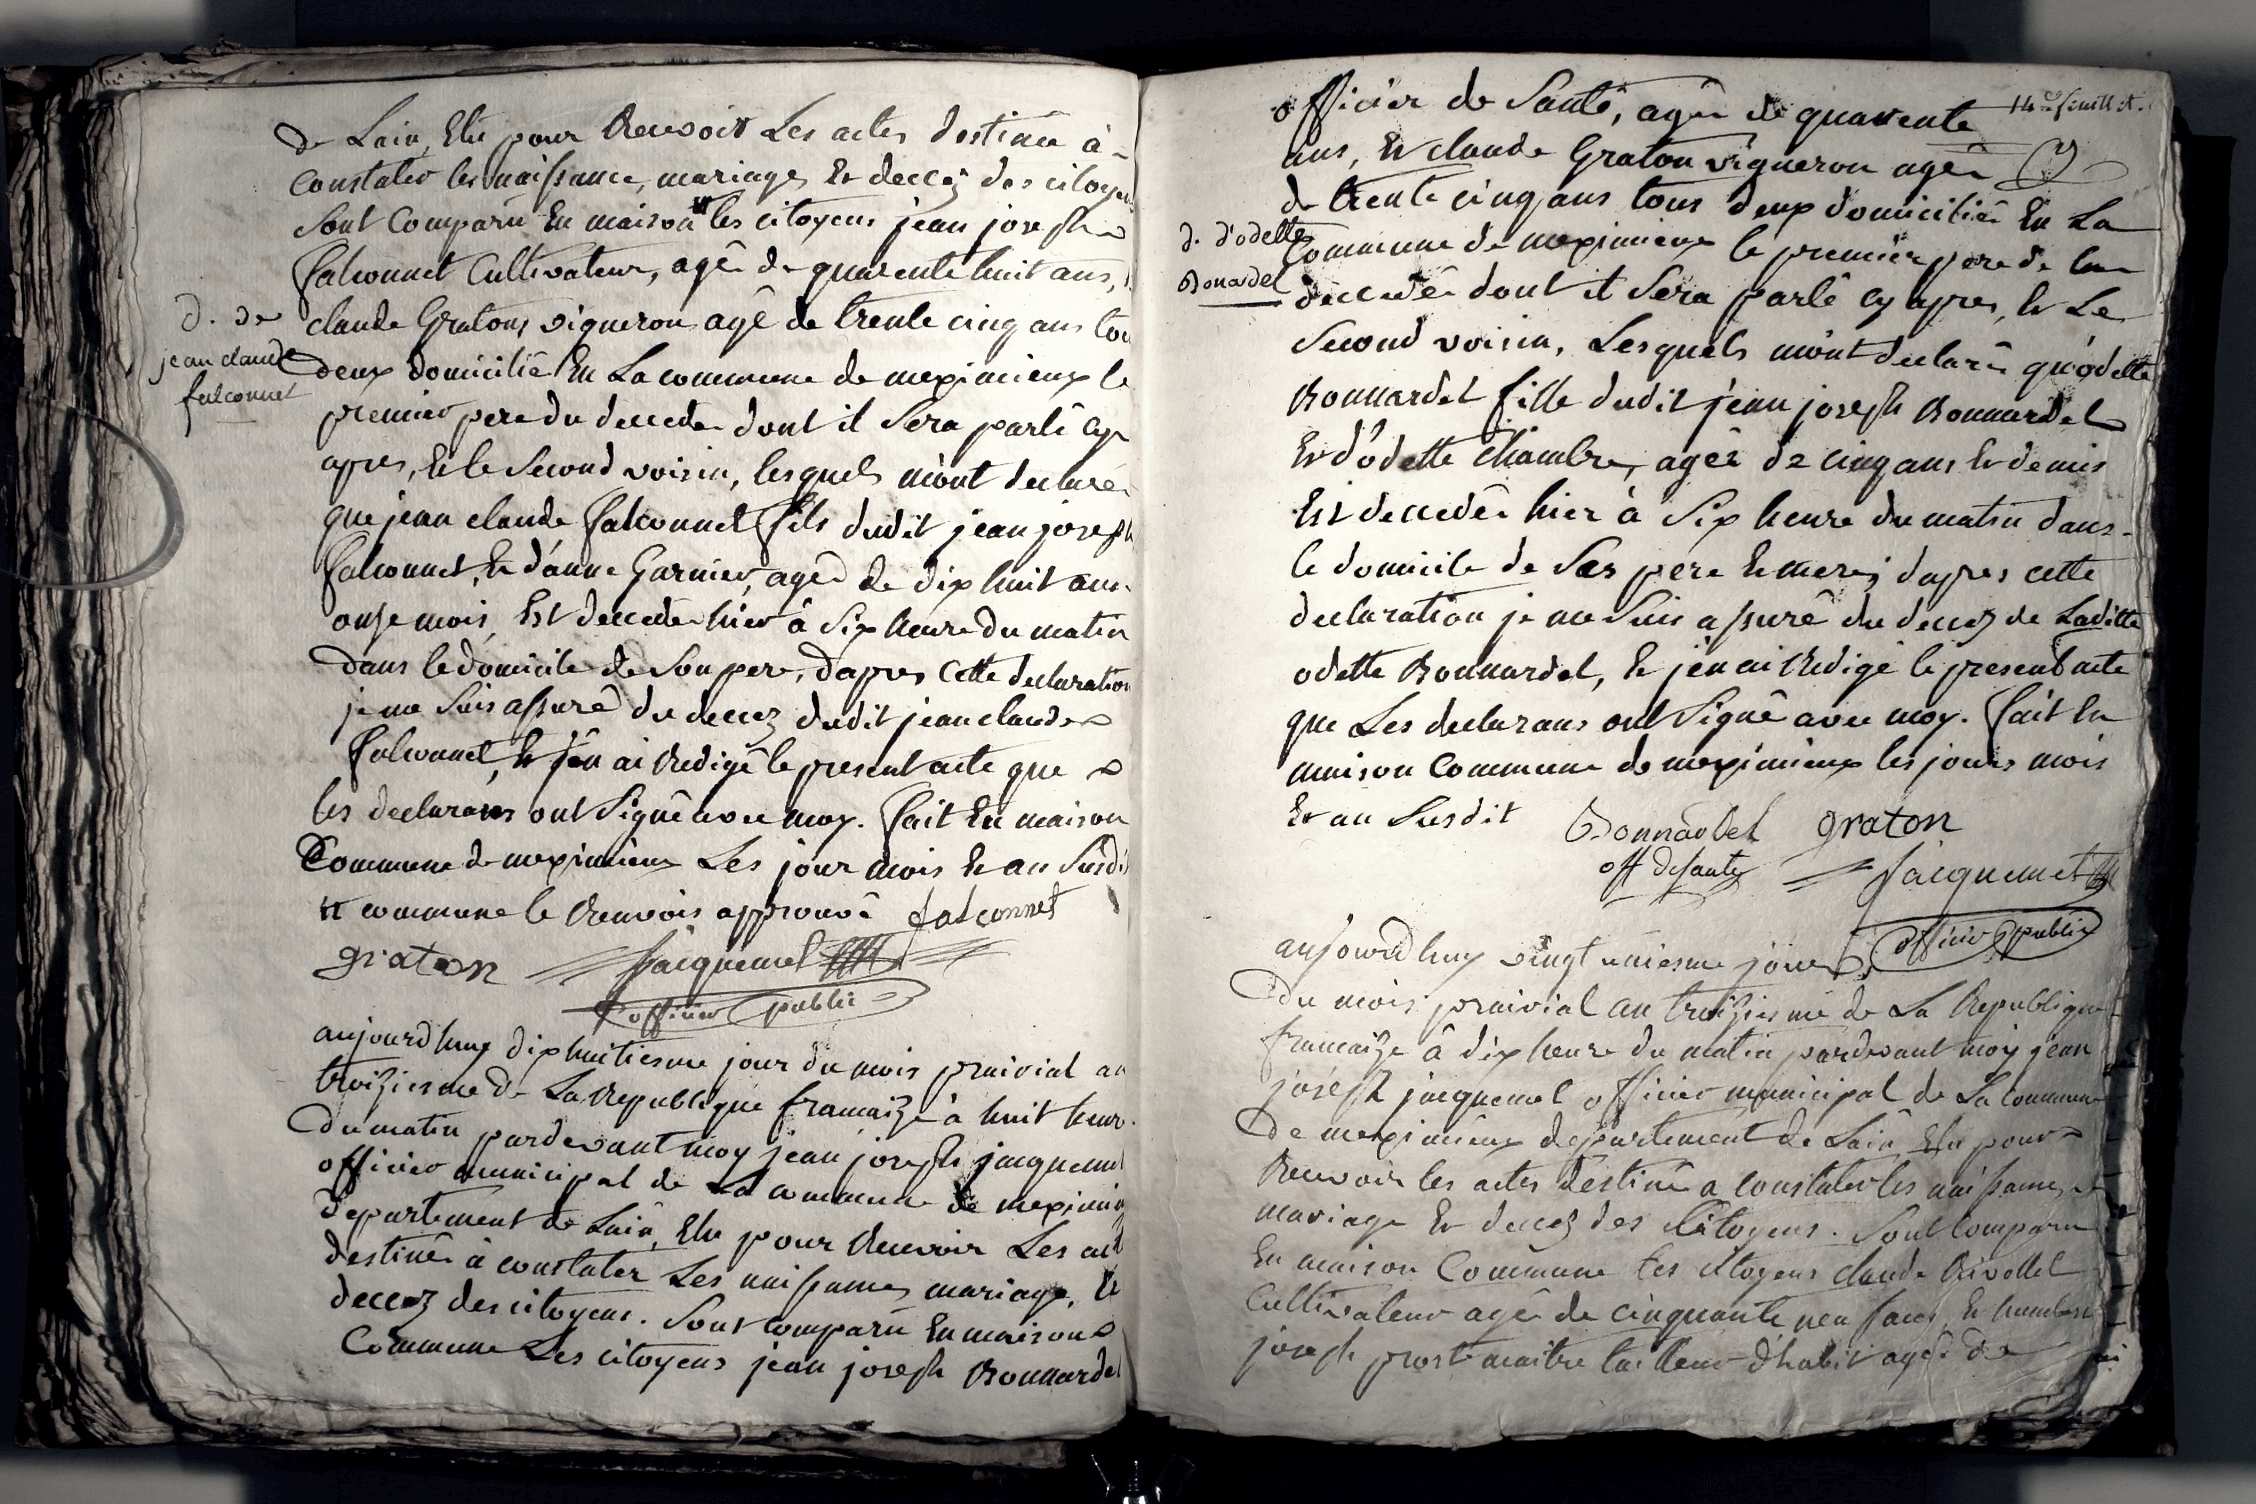 de Lain, Elu pour Recevoir Les actes destinée à
constater les naissance, mariages Et deccez des citoyens
sont comparu En maison # les citoyens jean joseph
falconnet Cultivateur, agê de quarente huit ans,
d. de
jean claude
falconnet
claude Graton, vigneron agê de trente cinq ans tou
deux domiciliê En La commune de meximieux le
premier pere du deccede dont il Sera parlê cy
apres, Et le Second voisin, lesquels m'ont declarê
que jean claude falconnet fils dudit jean joseph
falconnet, Et d'anne Garnier, agê de dix huit ans
onse mois, Est deccede hier à Six heure du matin
dans le domicile de Son pere, d'apres cette declaration
je me Suis assurê du deccez dudit jean claude
falconnet, Et j'en ai Redigê le present acte que
les declarans ont Signê avec moy. fait En maison
Commune de meximieux Les jour mois Et an Susdit
# commune le Renvois approuvê falconnet
graton Jacquemet
officier public
aujourdhuy dix huitiesme jour du mois prairial an
troiziesme de La Republique francaize à huit heure
du matin pardevant moy jean joseph jacquemet
officier municipal de La commune de meximieux
departement de Lain, Elu pour Recevoir Les act
destinê à constater Les naissances mariage, Et
deccez des citoyens. Sont comparu En maison
Commune Les citoyens jean joseph Bonnardel
14e feuillet.
officier de Santê, agê de quarente
ans, Et claude Graton vigneron agê
de trente cinq ans tous deux domiciliê En La
d. d'odette
Bonardel
Commune de meximieux le premier pere de la
deccedêe dont il Sera parlê cy apres, Et Le
Second voisin, Lesquels m'ont declarê qu'odette
Bonnardel fille dudit jean joseph Bonnardel
Et d'odette chambre, agêe de cinq ans Et demis
Est deccedêe hier à Six heure du matin dans
le domicile de Ses pere Et mere; dapres cette
declaration je me Suis assurê du deccez de Laditte
odette Bonnardel, Et j'en ai Redigê le present acte
que Les declarans ont Signê avec moy. fait En
maison Commune de meximieux les jours mois
Et an Susdit Bonnardel graton
off de sante Jacquemet
officier public
aujourdhuy vingt uniesme jour
du mois prairial an troiziesme de La Republique
francaize à dix heure du matin pardevant moy jean
joseph jacquemet officier municipal de La Commune
de meximieux departement de Lain Elu pour
Recevoir les actes destinê a constater les naissances
mariage Et deccez des Citoyens. Sont Comparu
En maison Commune les citoyens claude Rivollet
Cultivateur agê de cinquante neu fans, Et humbert
joseph prost maitre tailleur d'habit agê de